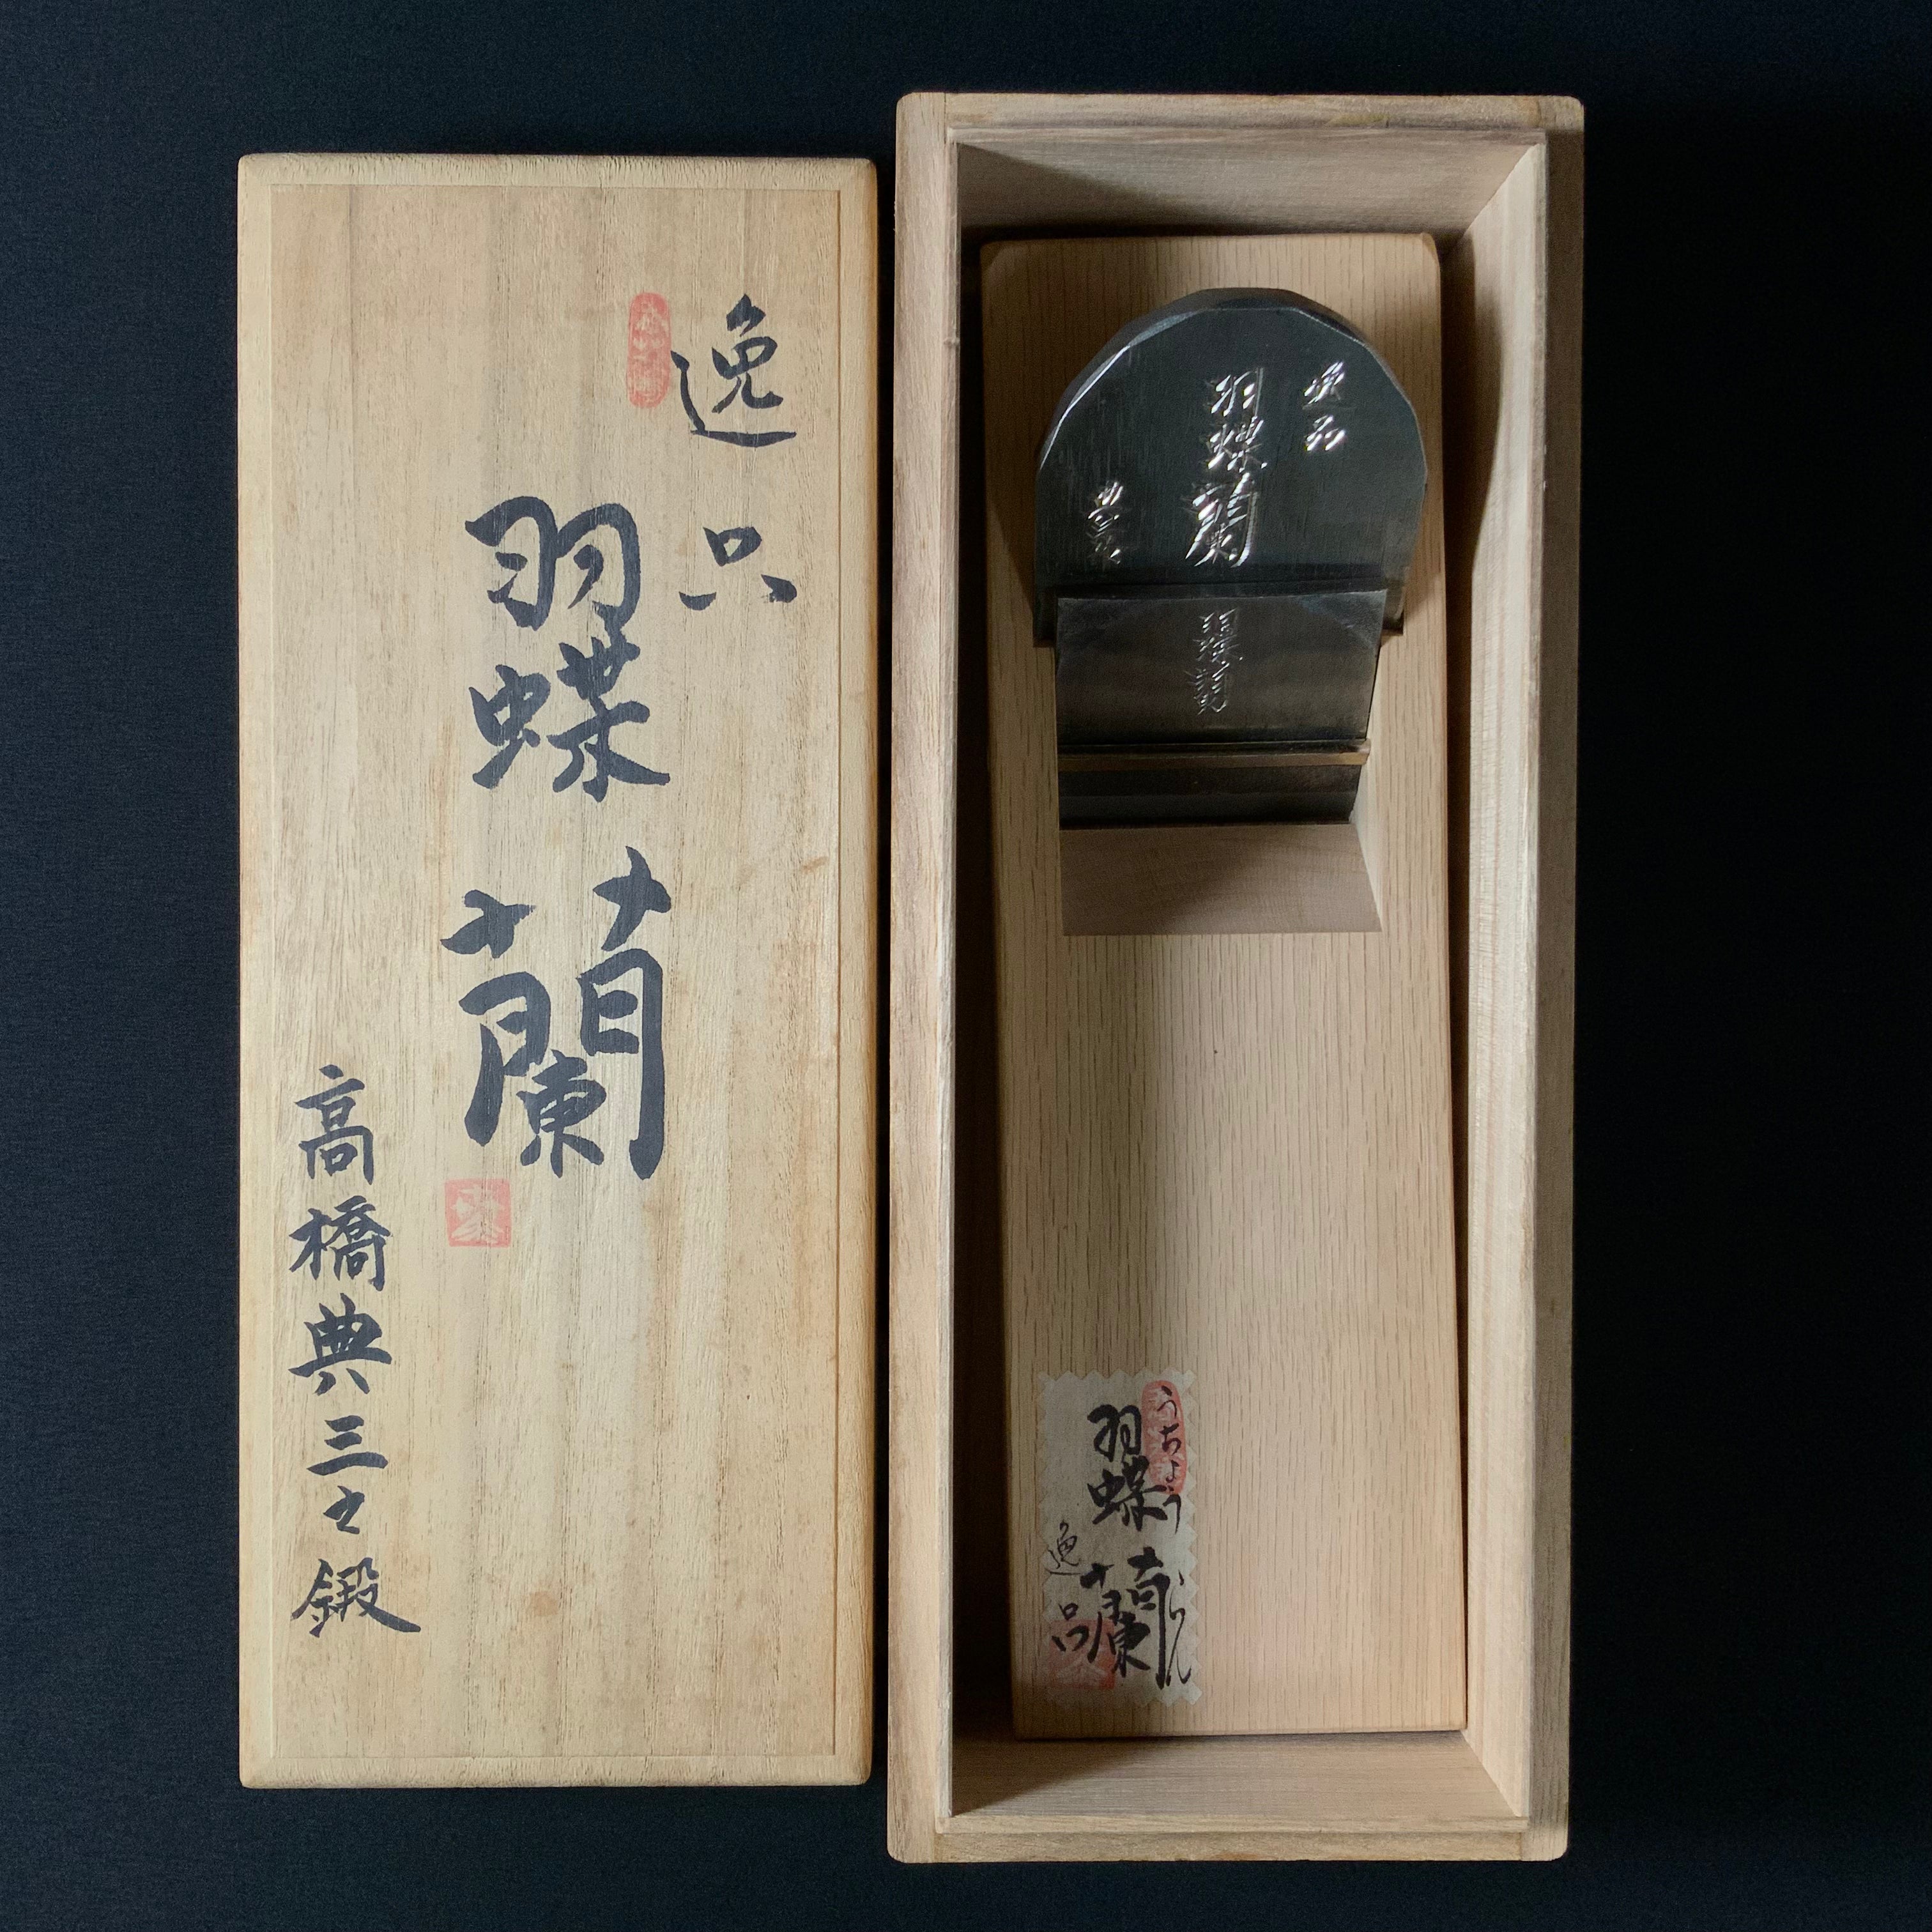 逸品
羽蝶蘭
高橋典三之鍛
逸品
羽蝶蘭
羽蝶蘭
うちょうらん
羽蝶蘭
逸品